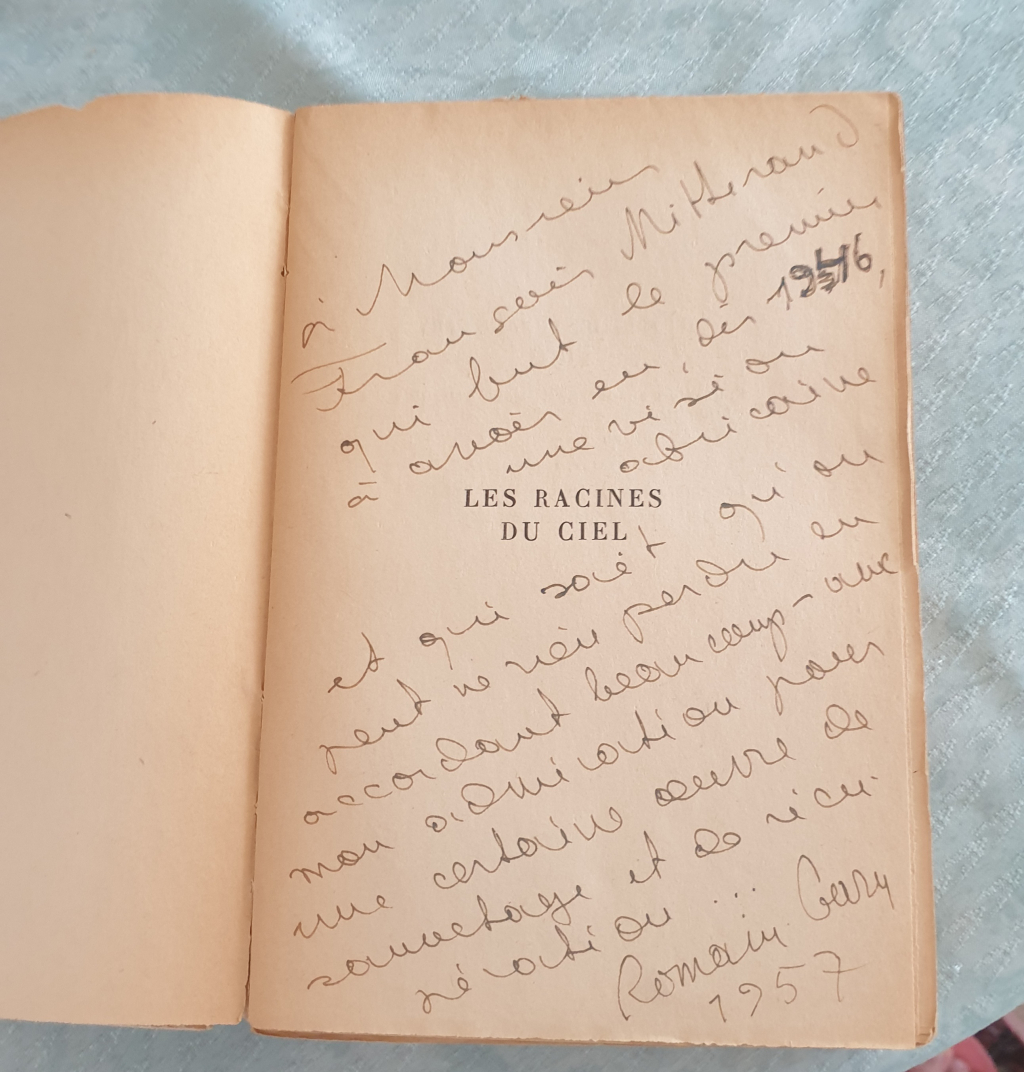 à Monsieur
François Mitterand
qui fut le premier
à avoir eu, dès 1946,
une vision
africaine
LES RACINES
DU CIEL
et qui sait qu'on
peut ne rien perdre en
accordant beaucoup - avec
mon admiration pour
une certaine œuvre de
sauvetage et de récu-
pération...
Romain Gary
1957